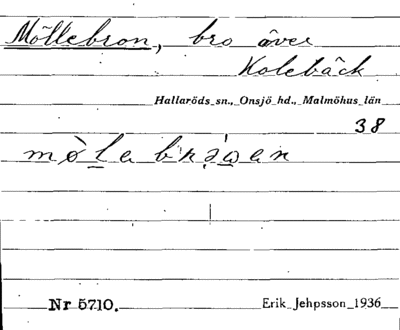 Möllebron, bro över
Kolebäck
Hallaröds sn., Onsjö hd., Malmöhus län
38
Nr 5710.
Erik Jehpsson 1936